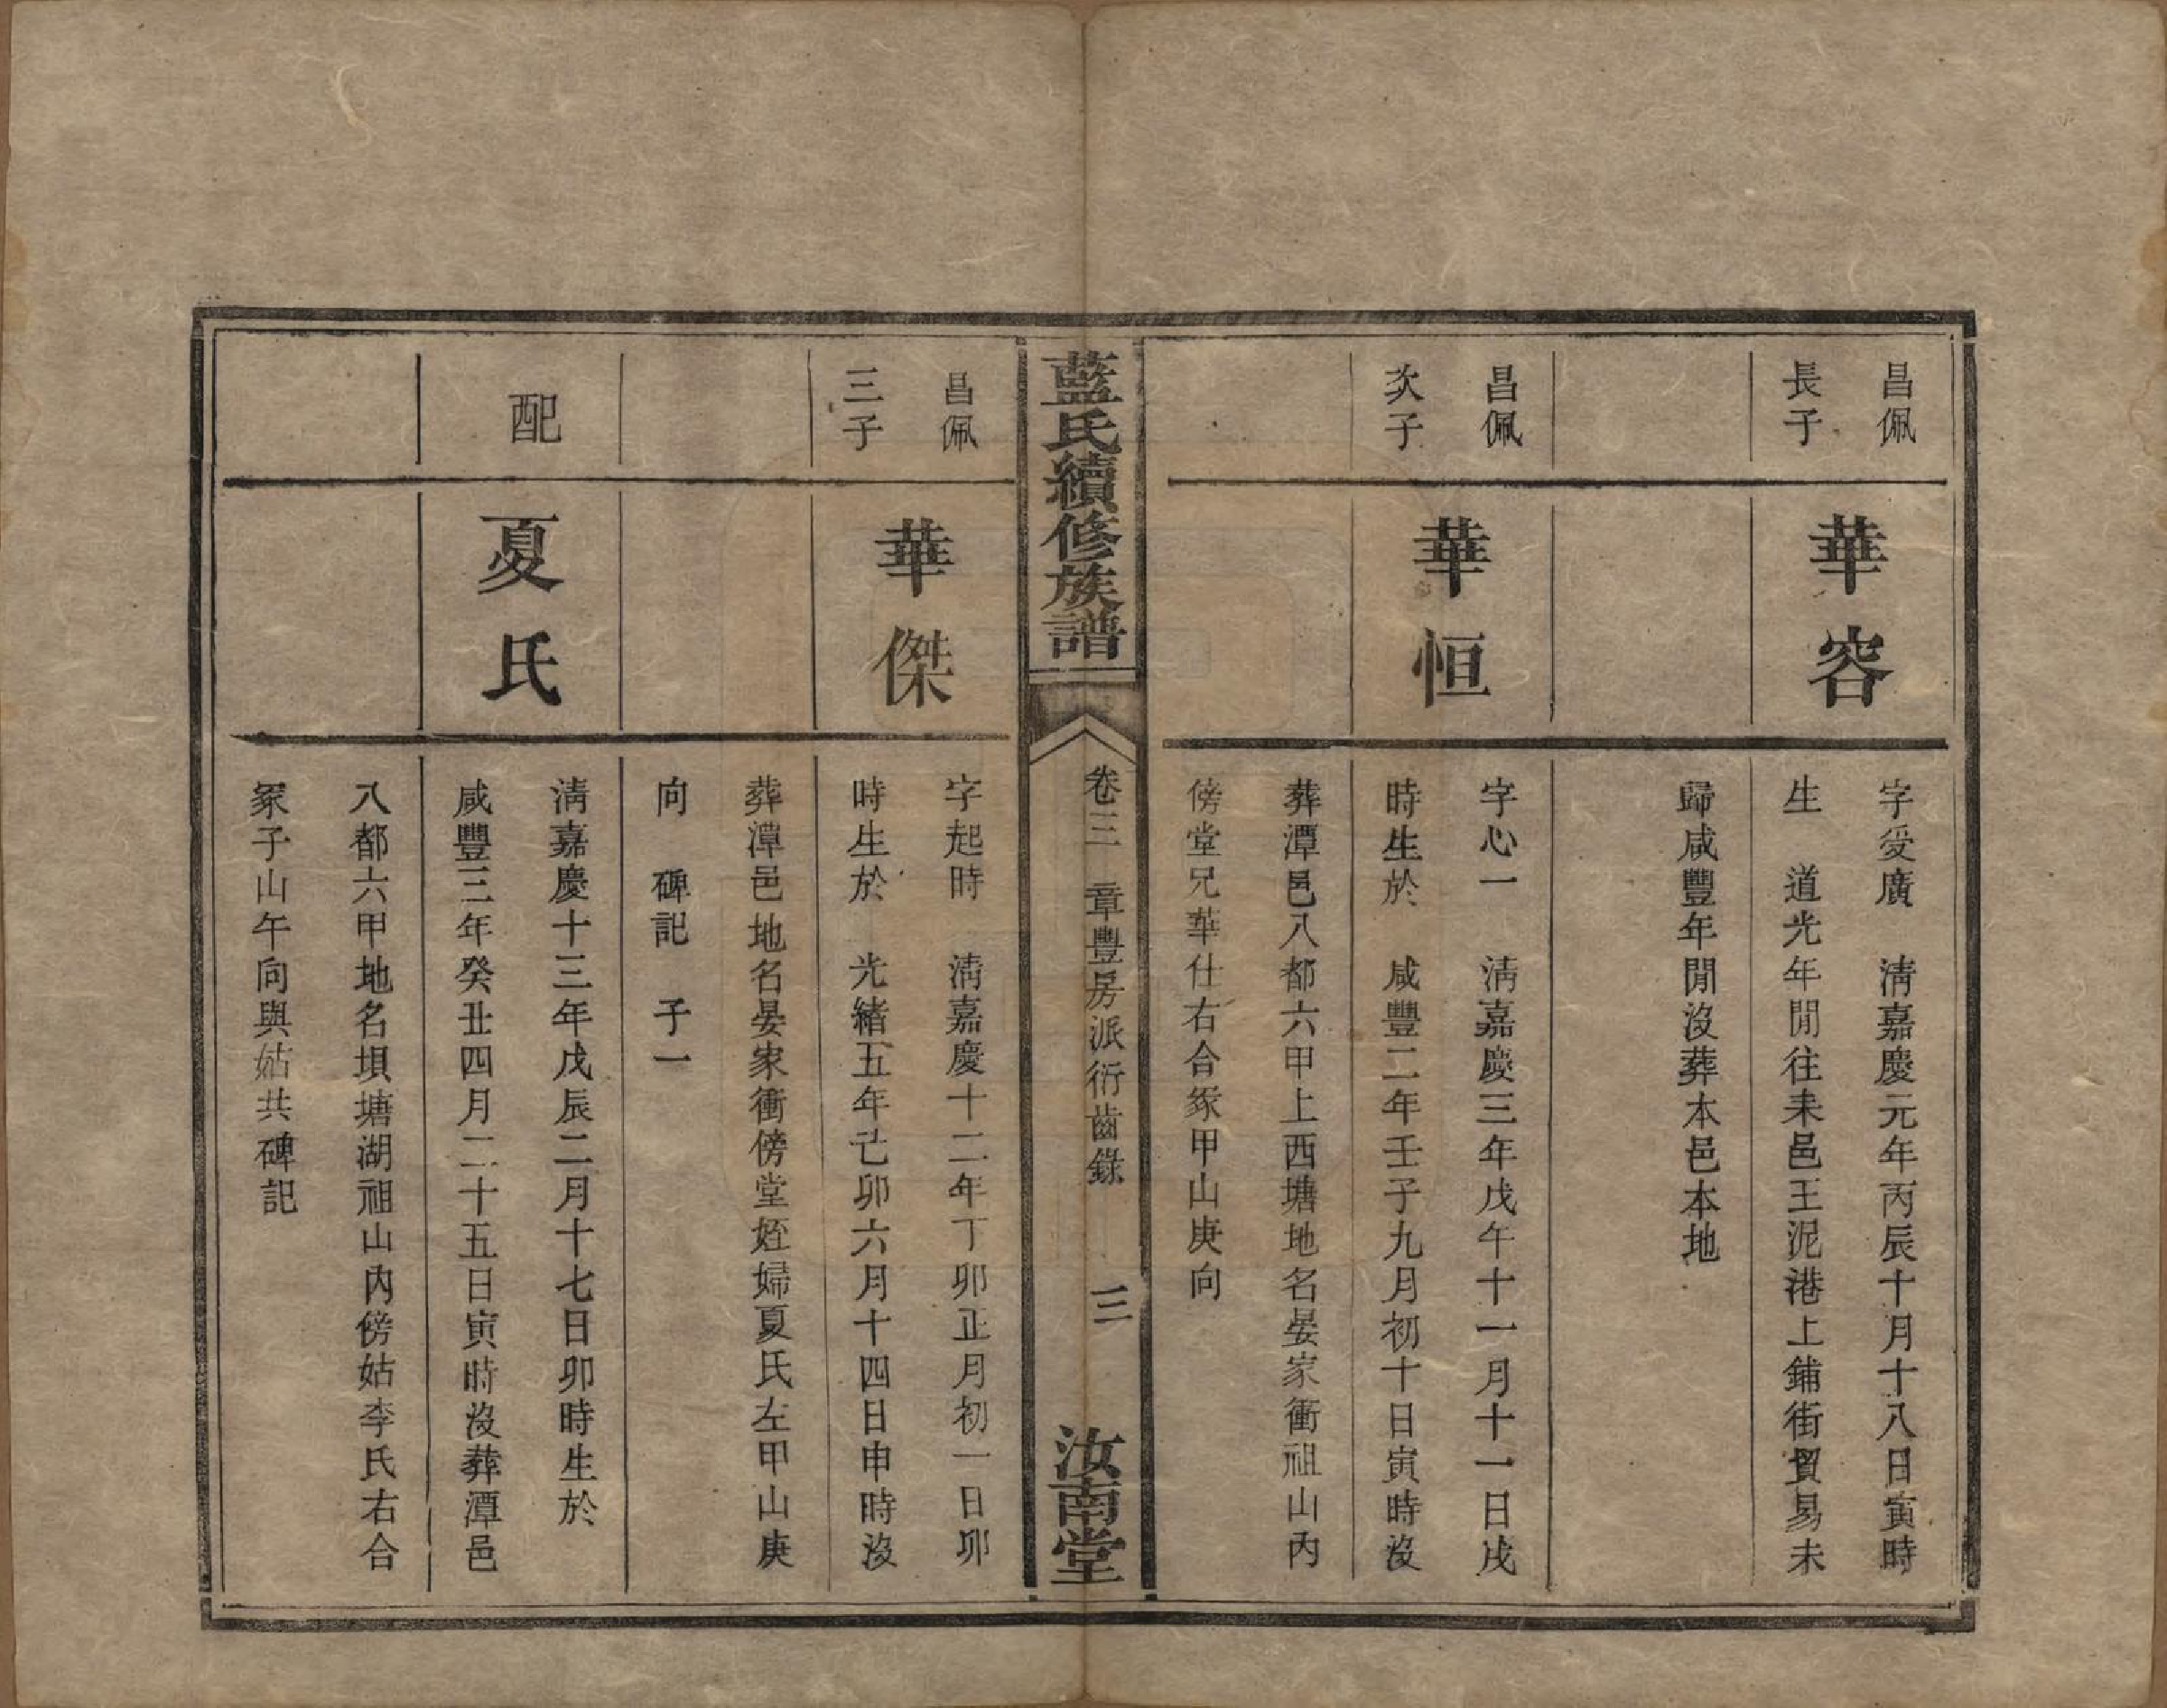 昌佩
長子
華容
字爰廣　淸嘉慶元年丙辰十月十八日寅時
生　道光年閒往耒邑王泥港上鋪街貿易未
歸咸豐年閒沒葬本邑本地
昌佩
次子
華恒
字心一　淸嘉慶三年戊午十一月十一日戌
時生於　咸豐二年壬子九月初十日寅時沒
葬潭邑八都六甲上西塘地名晏家衝祖山內
傍堂兄華仕右合冢甲山庚向
藍氏續修族譜
卷三　章豐房派衍齒錄　三
汝南堂
昌佩
三子
華傑
字起時　淸嘉慶十二年丁卯正月初一日卯
時生於　光緒五年己卯六月十四日申時沒
葬潭邑地名晏家衝傍堂姪婦夏氏左甲山庚
向　碑記　子一
配
夏氏
淸嘉慶十三年戊辰二月十七日卯時生於
咸豐三年癸丑四月二十五日寅時沒葬潭邑
八都六甲地名垻塘湖祖山內傍姑李氏右合
冢子山午向與姑共碑記